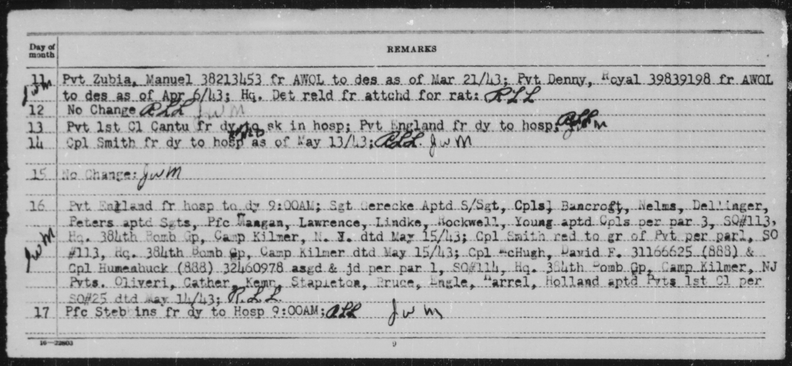 Day of
month
REMARKS
11 Pvt Zubia, Manuel 38213453 fr AWOL to des as of Mar 21/43; Pvt Denny, Royal 39839198 fr AWOL
JWM
to des as of Apr 6/43; Hq. Det reld fr attchd for rat: RLL
12 No Change RLL JWM
13 Pvt 1st Cl Cantu fr dy to sk in hosp; Pvt England fr dy to hosp; RLL JWM
14 Cpl Smith fr dy to hosp as of May 13/43; RLL. JWM
15 No Change: JWM
16 Pvt England fr hosp to dy 9:00AM; Sgt Gerecke Aptd S/Sgt, Cpls] Bancroft, Nelms, Dellinger,
Peters aptd Sgts, Pfc Mangan, Lawrence, Lindke, Rockwell, Young aptd Cpls per par 3, SO#113,
JWM
Hq. 384th Bomb Gp, Camp Kilmer, N. J. dtd May 15/43; Cpl Smith red to gr of Pvt per par1, SO
#113, Hq. 384th Bomb Gp, Camp Kilmer dtd May 15/43; Cpl McHugh, David F. 31166625 (888) &
Cpl Humenhuck (888) 32460978 asgd & jd per par 1, SO#114, Hq. 384th Bomb Gp, Camp Kilmer, NJ
Pvts. Oliveri, Cather, Kemr, Stapleton, Bruce, Engle, Harrel, Holland aptd Pvts 1st Cl per
SO#25 dtd May 14/43; R.L.L.
17 Pfc Stebbins fr dy to Hosp 9:00AM; RLL JWM
9